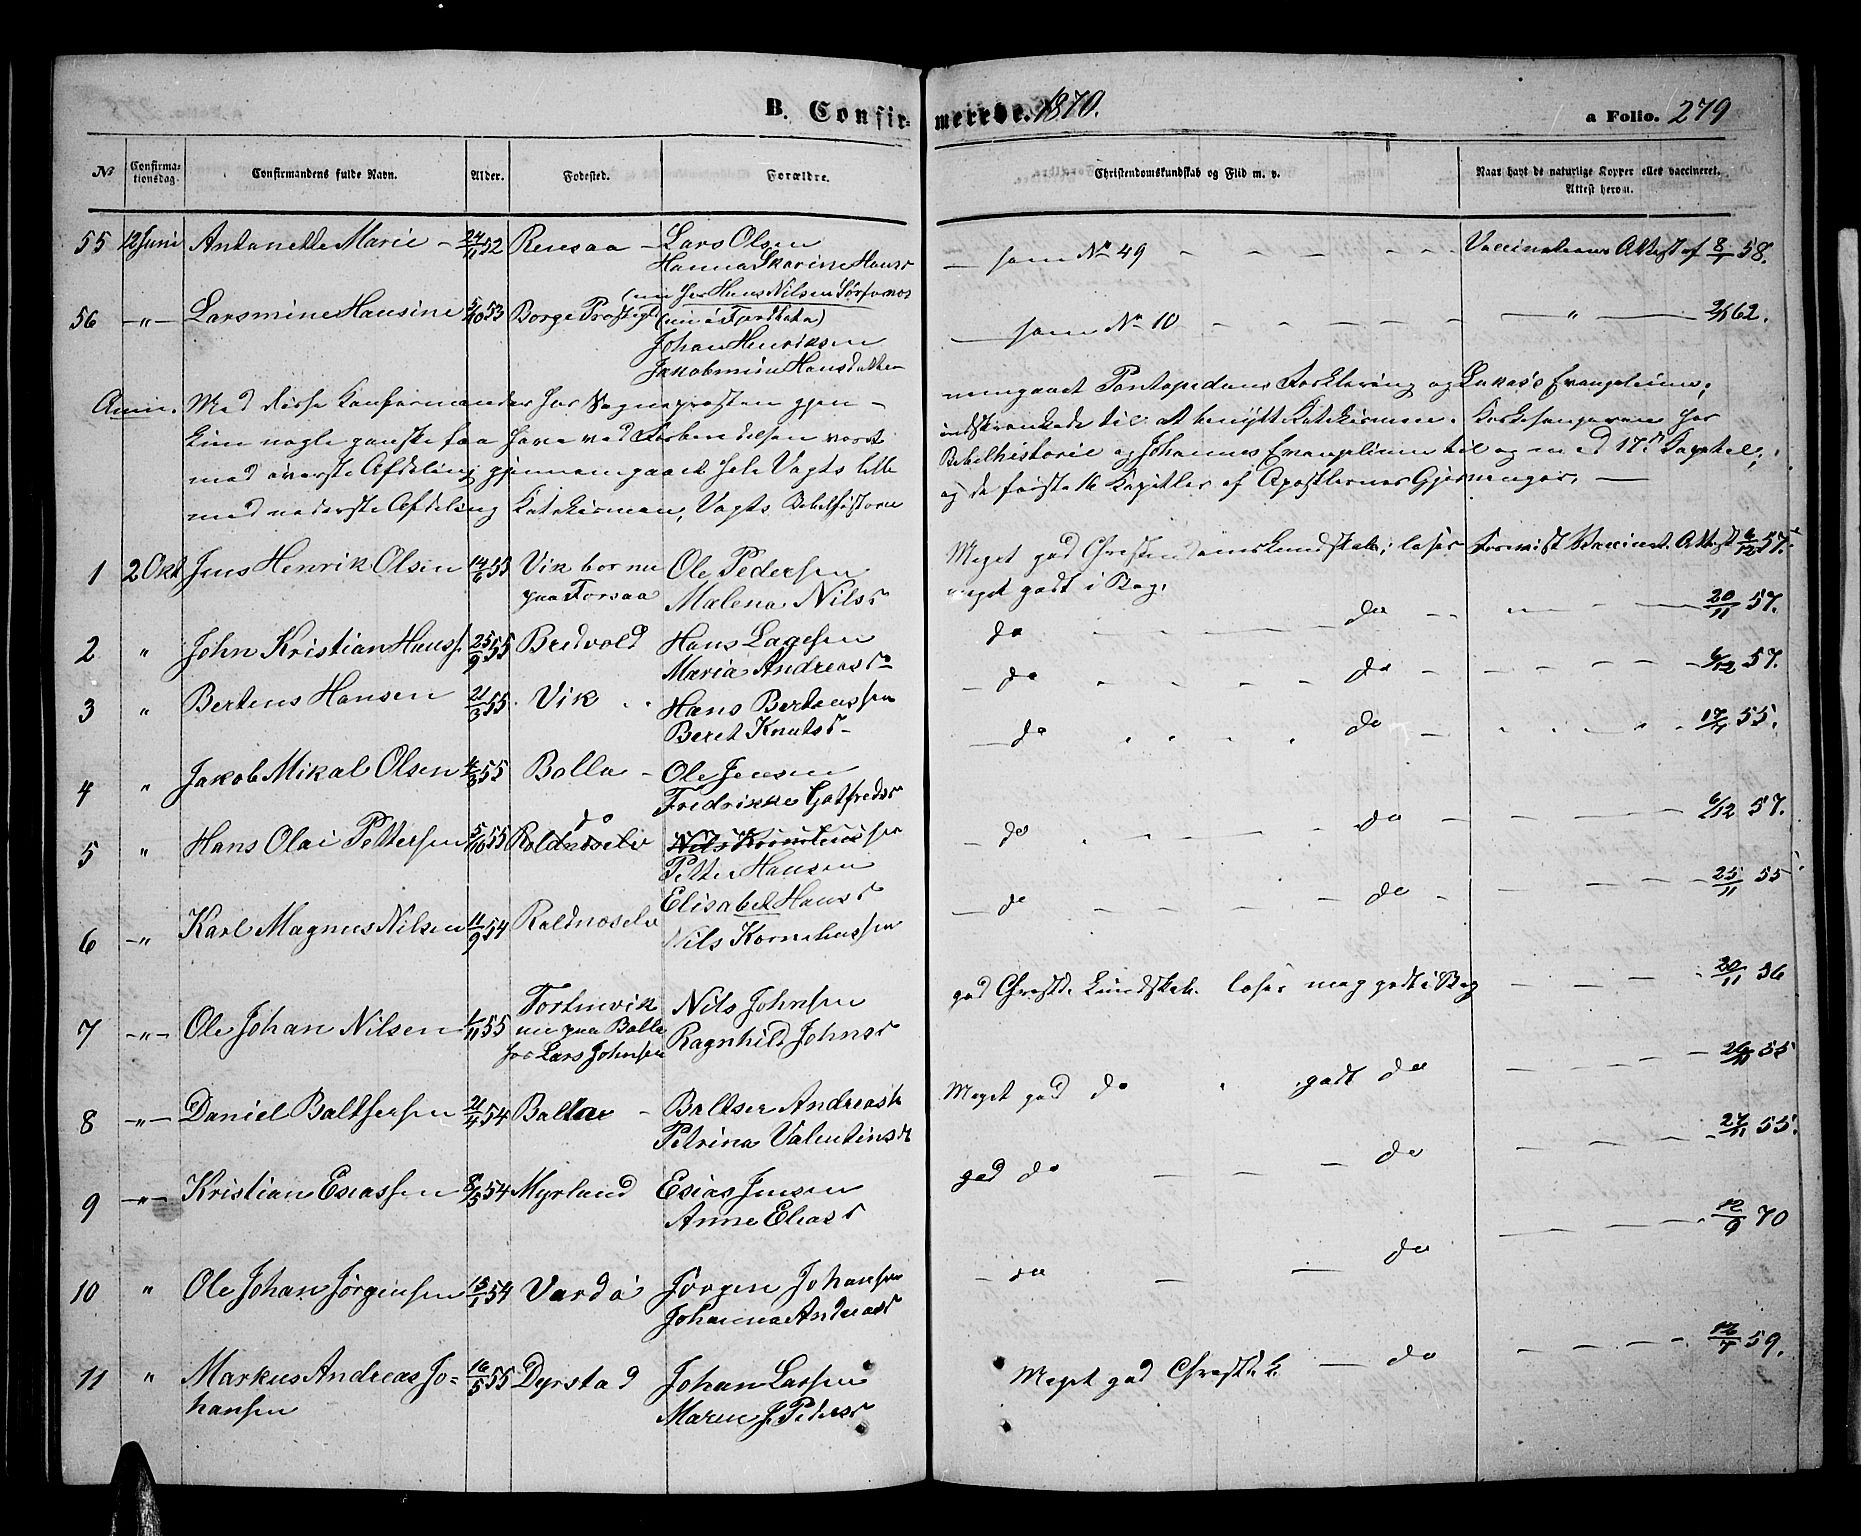 B. Confirmerede. 1870. a Folio. 279
No Confirmationsdag. Confirmandens fulde Navn. Alder. Fødested. Forældre. Christendomskundskab og Flid m. v. Naar havt de naturlige Kopper eller vaccineret. Attest herom.
55 12 Juni Antonette Marie - 24/11 52 Renså - Lars Olsen
Hanna Skarine Hansd
— som No 49 - - - - - - Vaccinations Attest af 8/1 58.
(nu hos Hans Nilsen Sørfornes
56 —"— Larsmine Hansine 5/10 53 Borge Præstegd
Johan Henriksen
Jakobmine Hansdatter
— som No 10 - - - - - - — " — 2/1 62.
Anm. Med disse Konfirmander har Sognepræsten gjennemgaaet Pontopidans Forklaring og Lukas's Evangelium;
kun nogle ganske faa have ved Forberedelsen været indskrænkede til at benytte Katekismen. Kirkesangeren har
med øverste Afdeling gjennemgaaet hele Vogts lille Bibelhistorie og Johannes Evangelium til og med 17de Kapitel;
med nederste Afdeling Katekismen, Vogts Bibelhistorie og de første 16 Kapitler af Apostlernes Gjerninger. —
1 2 Okt Jens Henrik Olsen 14/6 53 Vik bor nu Ole Pedersen
paa Forsaa Malena Nilsd
Meget god Christendomskundskab; læser Forevist Vaccinat. Attest 6/12 57.
meget godt i Bog.
2 " John Kristian Hanss. 25/9 55 Bredvold Hans Lagesen
Maria Andreasd
do - - - - do - - - - 20/11 57.
3 " Bertens Hansen 21/3 55. Vik . . Hans Berteussen
Beret Knutsd -
- do - - - - do - - - - 6/12 57.
4 " Jakob Mikal Olsen 4/3 55 Bolla - Ole Jensen
Fredrikke Gotfredsd
— do - - - - do - - - - 17/1 55.
do
5 " Hans Olai Pettersen 5/10 55 Roldnoselv Nils Korneliussen
Petter Hansen
Elisabet Hansd
- do - - - - do - - - - 6/12 57.
6 —" Karl Magnus Nilsen 11/9 54 Roldnoselv
Nils Korneliussen
— do - - - - do - - - - 25/11 55
7 —"— Ole Johan Nilsen 1/11 55 Fortinvik Nils Johnsen
nu paa Bolla Ragnhild Johnsd
hos Lars Johnsen
god Christd. kundskab læser meg godt i Bog - - - 20/11 56
8 —"— Daniel Baltsersen 21/4 54 Balta - Baltser Andreass
Petrina Valentinsd
Meget god do - godt do - - - 26/11 55
9 —"— Kristian Esiassen 8/5 54 Myrland Esias Jensen
Anne Eliasd
god do - - - do - - - 27/11 55.
10 " Ole Johan Jørgensen 15/1 54 Vardø Jørgen Johansen
Johanna Andreasd
- do - - do - - - 12/9 70
11 " Markus Andreas Jo= 16/5 55 Dyrstad Johan Larsen
hansen Maren J. Pedersd
Meget god Christd. k — do - - - 12/7 59.